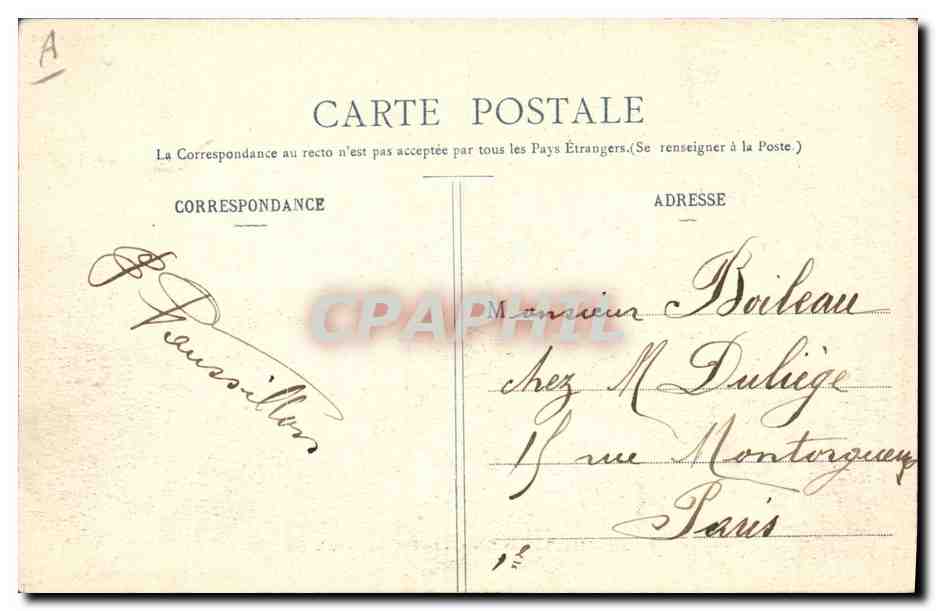 A
CARTE POSTALE
La Correspondance au recto n'est pas acceptée par tous les Pays Étrangers.(Se renseigner à la Poste.)
CORRESPONDANCE
ADRESSE
Monsieur Boileau
chez M Duliège
15 rue Montorgueil
Paris
1e
CPAPHIL